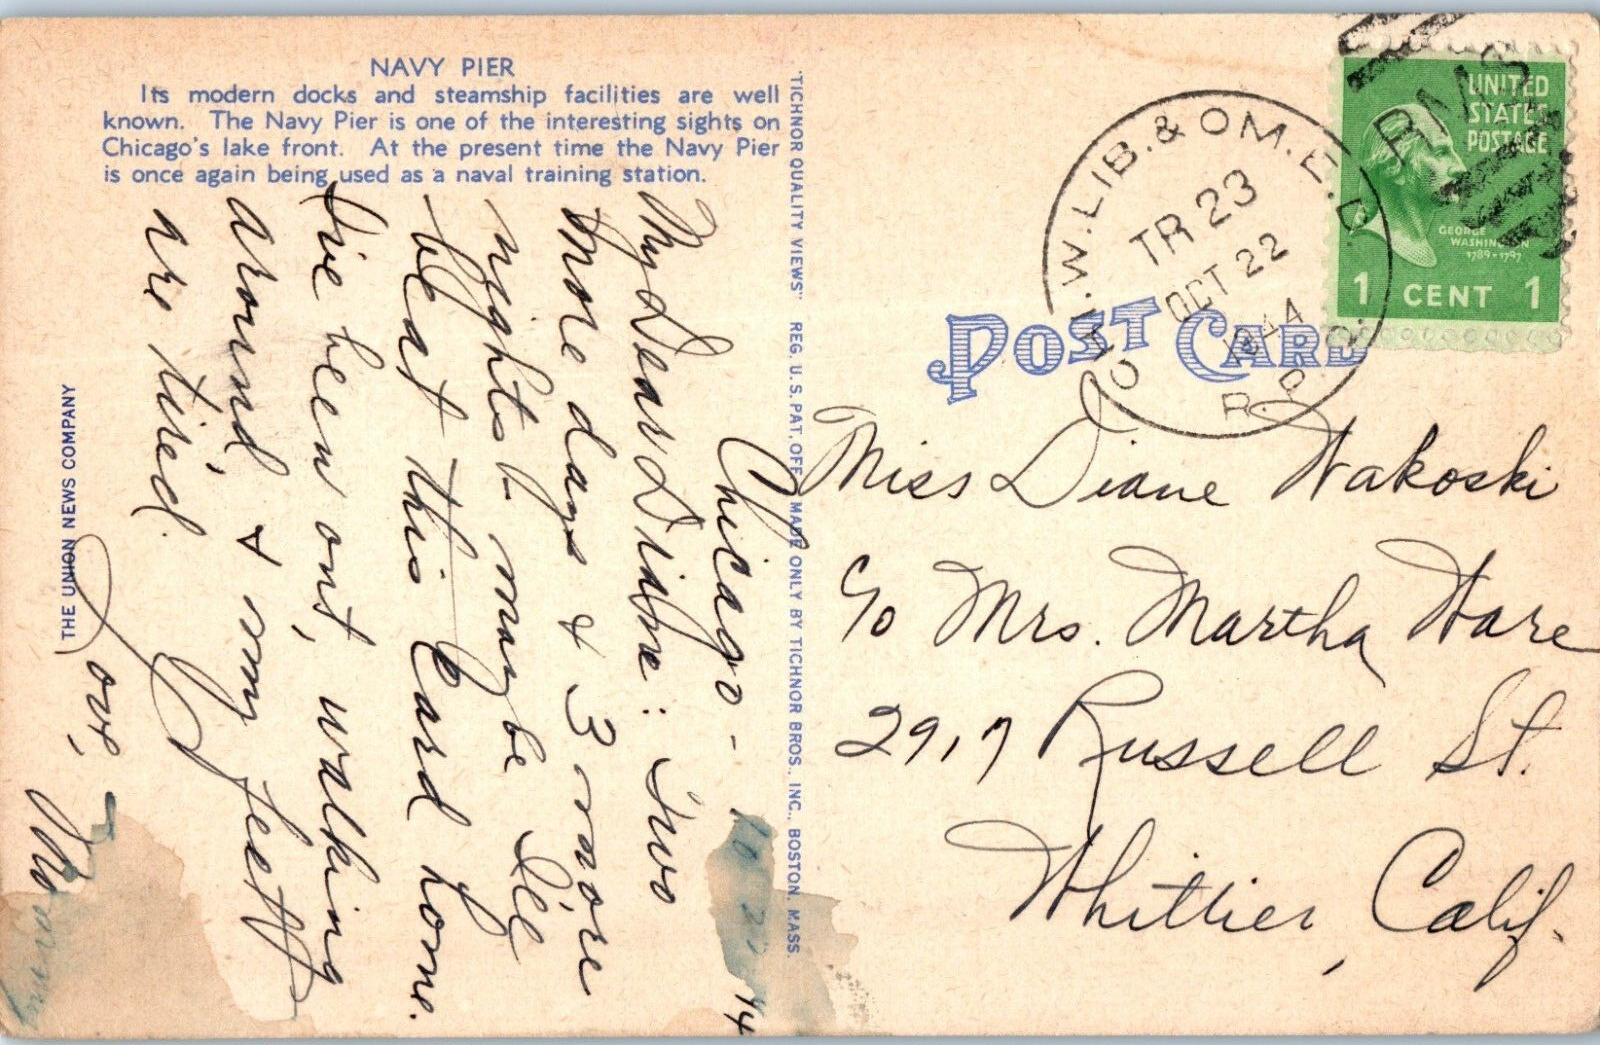 NAVY PIER
Its modern docks and steamship facilities are well
known. The Navy Pier is one of the interesting sights on
Chicago's lake front. At the present time the Navy Pier
is once again being used as a naval training station.
THE UNION NEWS COMPANY
"TICHNOR QUALITY VIEWS" REG. U.S. PAT. OFF. MADE ONLY BY TICHNOR BROS., INC., BOSTON, MASS.
Chicago - 44
My Dear Diane: Two
more days & 3 more
nights & maybe I'll
beat this card home.
I've been out, walking
around, & my feet
are tired.
Love,
POST CARD
CHI.W.LIB.& OM.E.D.
TR 23
OCT 22
1944
R.P.O.
RMS
UNITED
STATES
POSTAGE
GEORGE
WASHINGTON
1789-1797
1 CENT 1
Miss Diane Wakoski
c/o Mrs. Martha Ware
2917 Russell St.
Whittier, Calif.